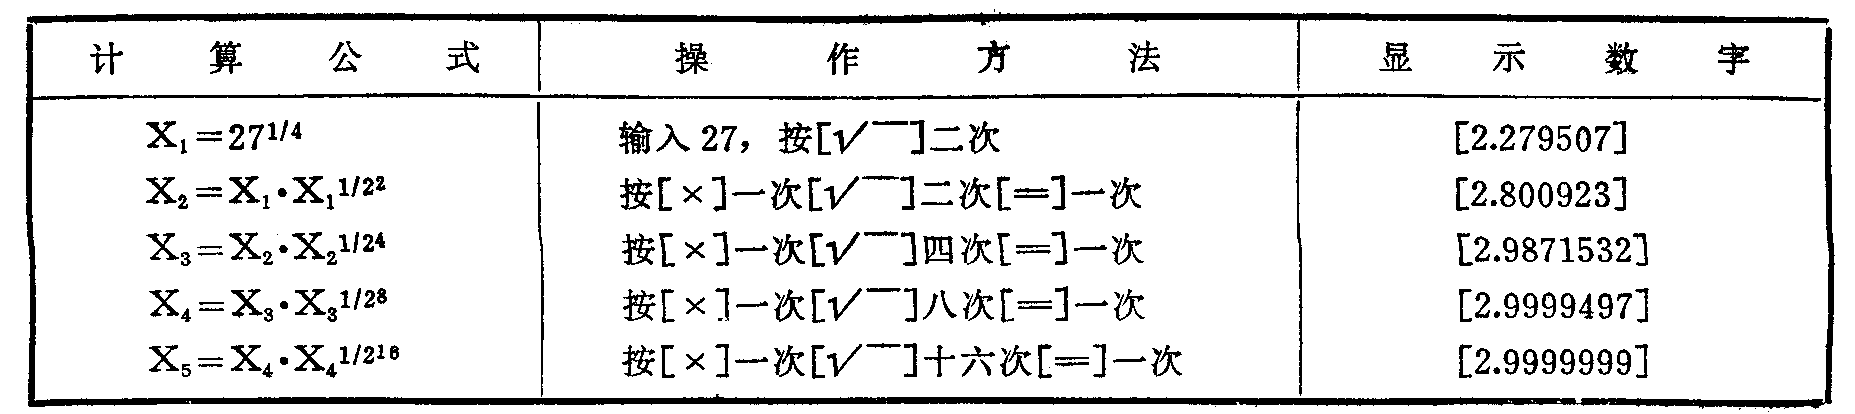 计算公式 操作方法 显示数字
X₁=27^{1/4} 输入27，按[√￣]二次 [2.279507]
X₂=X₁·X₁^{1/2²} 按[×]一次[√￣]二次[=]一次 [2.800923]
X₃=X₂·X₂^{1/2⁴} 按[×]一次[√￣]四次[=]一次 [2.9871532]
X₄=X₃·X₃^{1/2⁸} 按[×]一次[√￣]八次[=]一次 [2.9999497]
X₅=X₄·X₄^{1/2¹⁶} 按[×]一次[√￣]十六次[=]一次 [2.9999999]